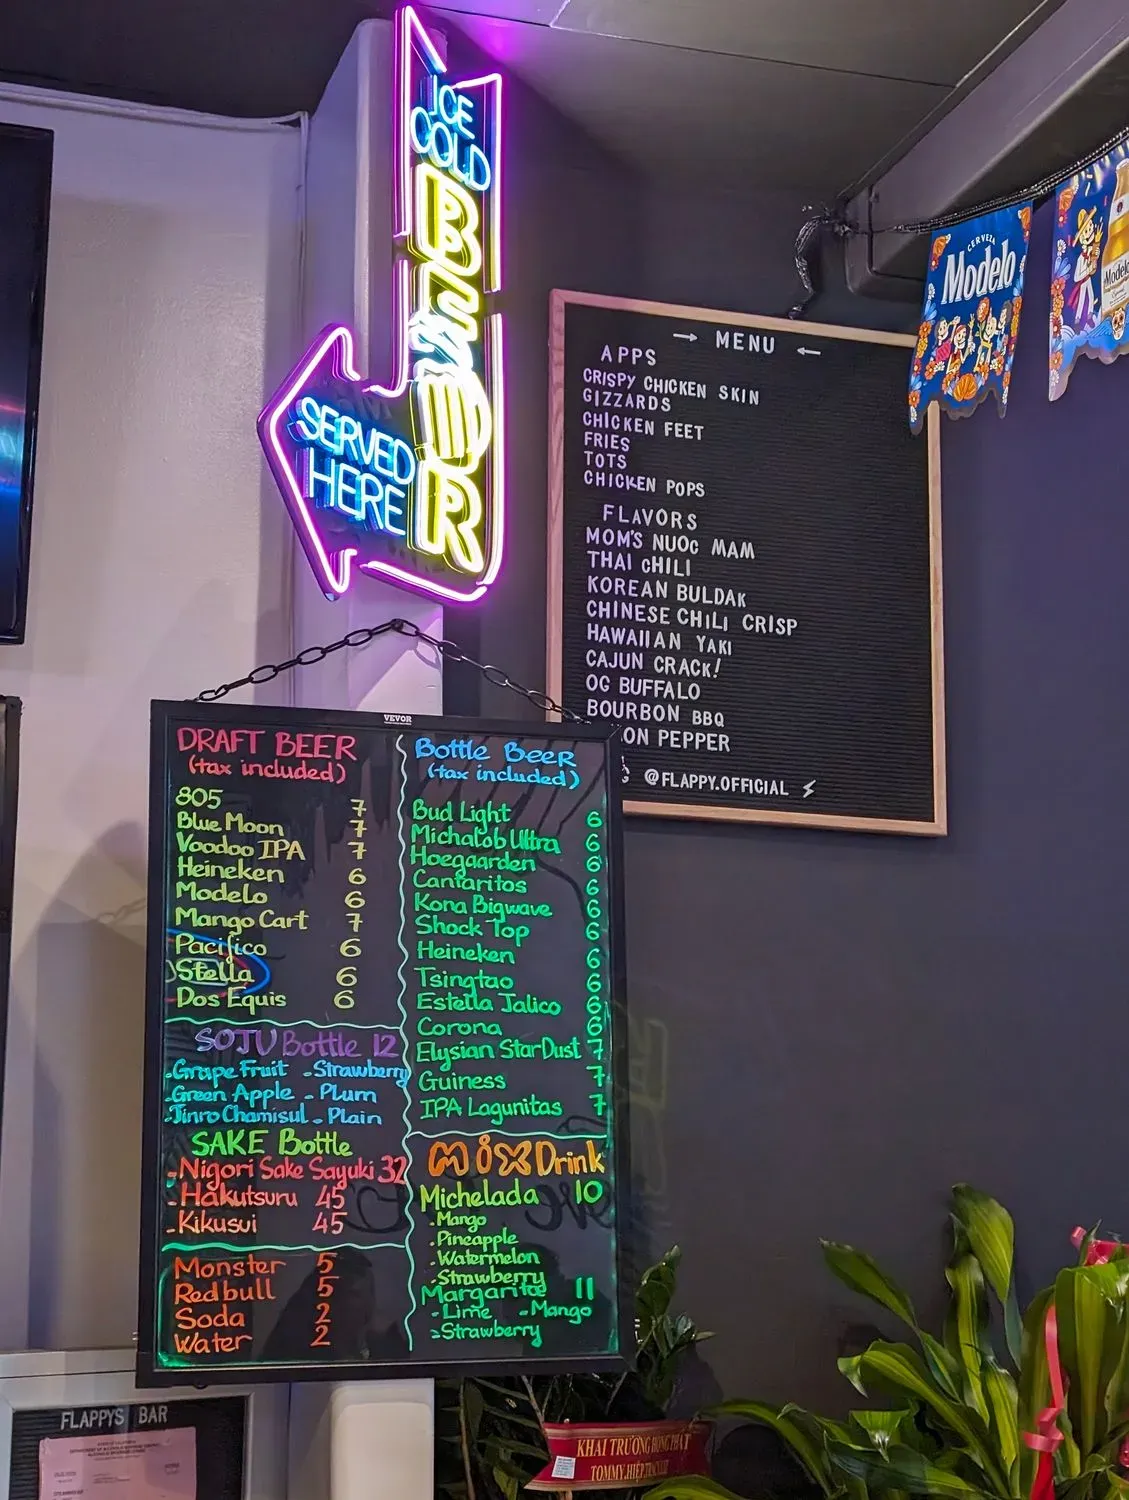 ICE
COLD
BEER
SERVED
HERE
CERVEZA
Modelo
Modelo
→ MENU ←
APPS
CRISPY CHICKEN SKIN
GIZZARDS
CHICKEN FEET
FRIES
TOTS
CHICKEN POPS
FLAVORS
MOM'S NUOC MAM
THAI CHILI
KOREAN BULDAK
CHINESE CHILI CRISP
HAWAIIAN YAKI
CAJUN CRACK!
OG BUFFALO
BOURBON BBQ
ON PEPPER
@FLAPPY.OFFICIAL
VEVOR
DRAFT BEER
(tax included)
805 7
Blue Moon 7
Voodoo IPA 7
Heineken 6
Modelo 6
Mango Cart 7
Pacifico 6
Stella 6
Dos Equis 6
SOJU Bottle 12
-Grape Fruit -Strawberry
-Green Apple -Plum
-Jinro Chamisul -Plain
SAKE Bottle
-Nigori Sake Sayuki 32
-Hakutsuru 45
-Kikusui 45
Monster 5
Redbull 5
Soda 2
Water 2
Bottle Beer
(tax included)
Bud Light 6
Michalob Ultra 6
Hoegaarden 6
Cantaritos 6
Kona Bigwave 6
Shock Top 6
Heineken 6
Tsingtao 6
Estella Jalico 6
Corona 6
Elysian StarDust 7
Guiness 7
IPA Lagunitas 7
MIX Drink
Michelada 10
-Mango
-Pineapple
-Watermelon
-Strawberry
Margaritae 11
-Lime -Mango
-Strawberry
FLAPPYS BAR
KHAI TRƯƠNG HỒNG PHÁT
TOMMY, HIỆP